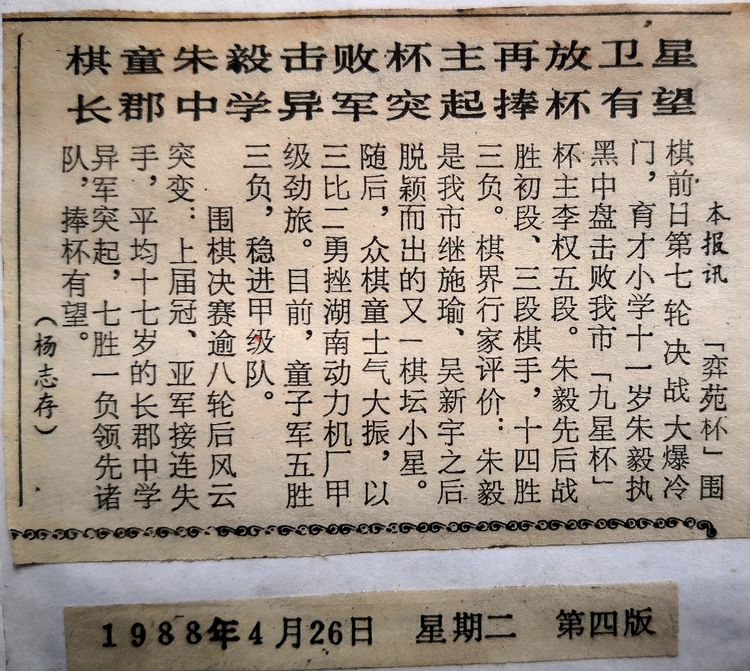 棋童朱毅击败杯主再放卫星
长郡中学异军突起捧杯有望
本报讯 「弈苑杯」围
棋前日第七轮决战大爆冷
门，育才小学十一岁朱毅执
黑中盘击败我市「九星杯」
杯主李权五段。朱毅先后战
胜初段、三段棋手，十四胜
三负。棋界行家评价：朱毅
是我市继施瑜、吴新宇之后
脱颖而出的又一棋坛小星。
随后，众棋童士气大振，以
三比二勇挫湖南动力机厂甲
级劲旅。目前，童子军五胜
三负，稳进甲级队。
围棋决赛逾八轮后风云
突变：上届冠、亚军接连失
手，平均十七岁的长郡中学
异军突起，七胜一负领先诸
队，捧杯有望。
（杨志存）
1988年4月26日 星期二 第四版